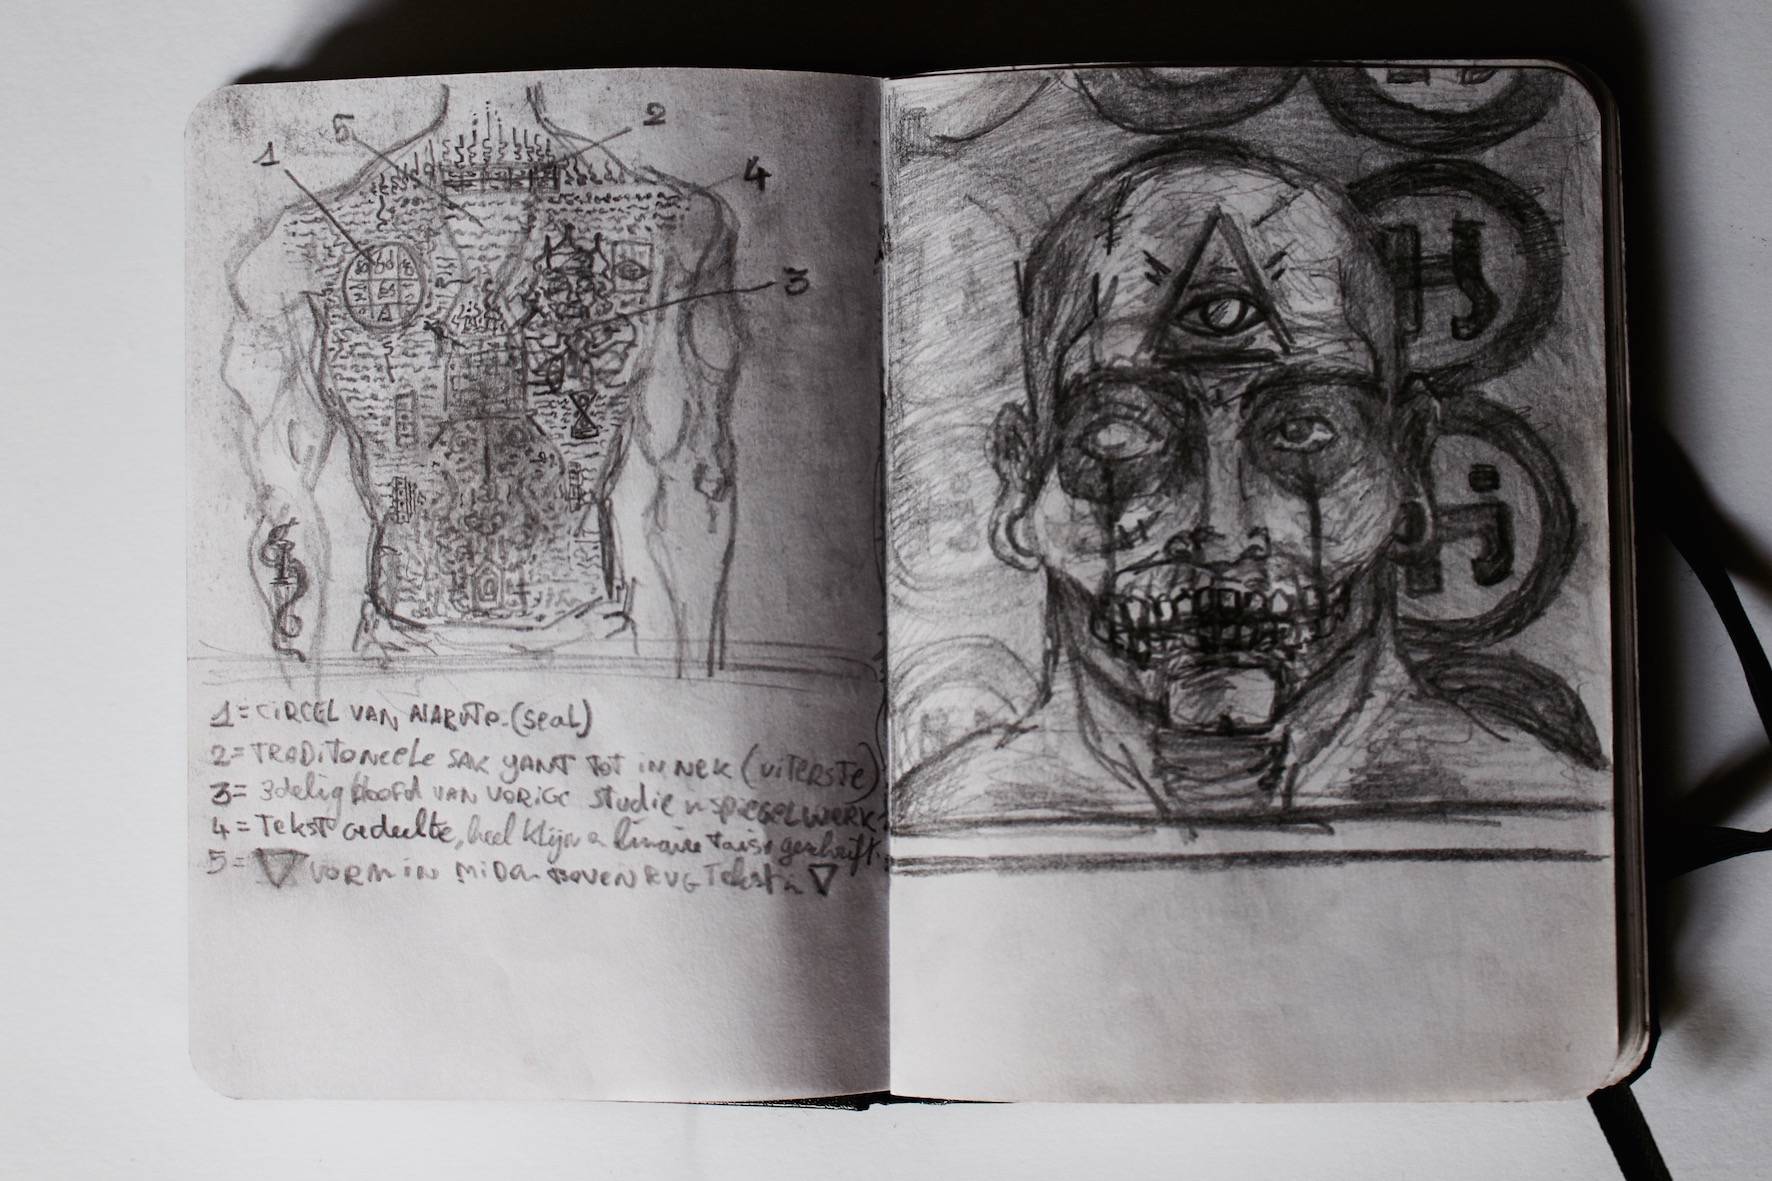 5
2
1
4
3
1 = CiRCEL VAN NARUTO (Seal)
2 = TRADiToneele SAK YANT TOT in NEK (UiTERSTE)
3 = 3delig Hoofd VAN VORiGe studie n SPiEGELWERK
4 = Tekst gedeelte, heel klijn geschrift
5 = ▽ VORM iN MiDdn BOVEN RUG Tekst ▽
H
H